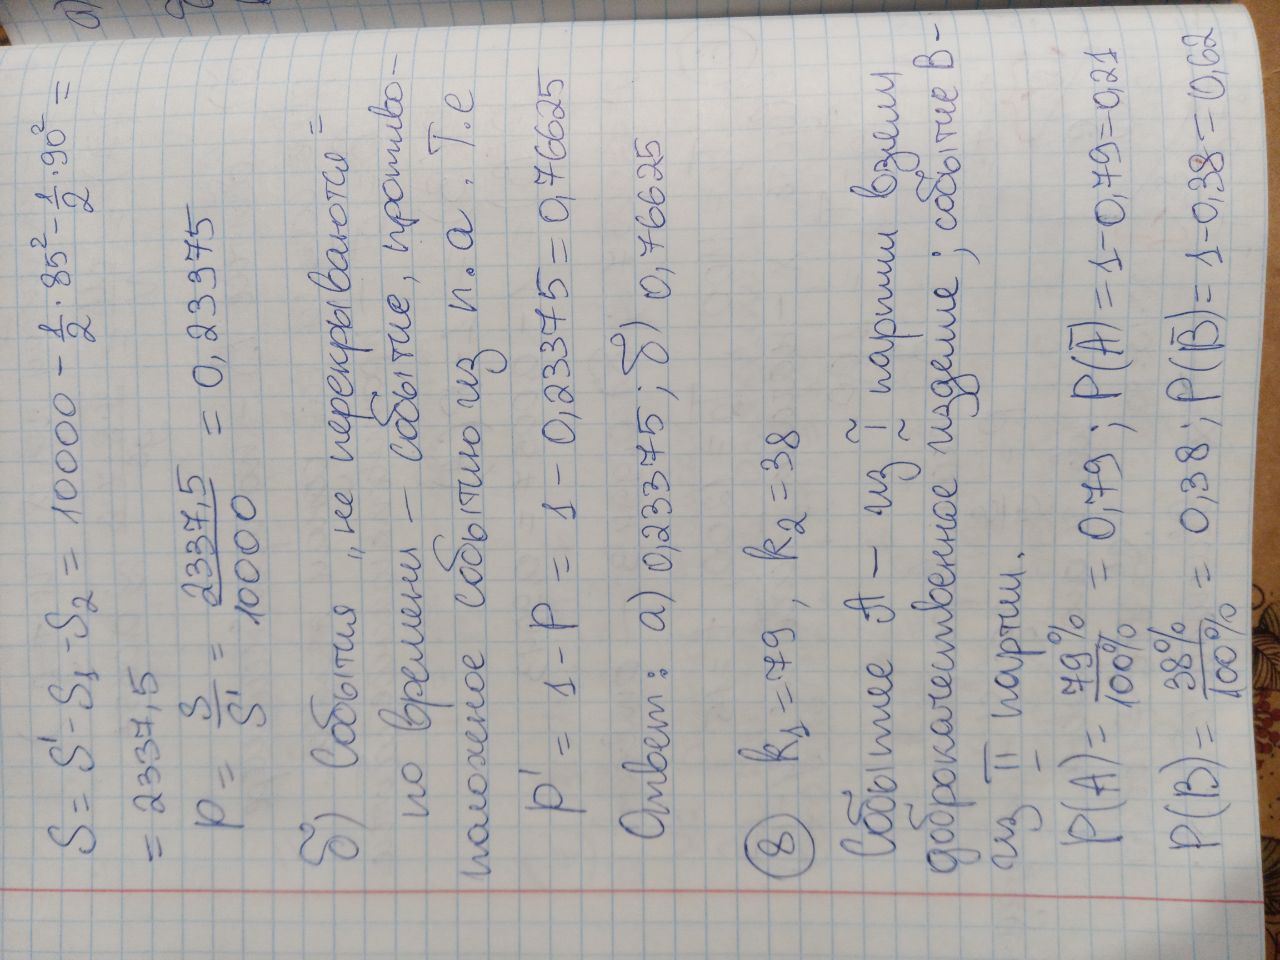 S = S' - S₁ - S₂ = 10000 - 1/2 · 85² - 1/2 · 90² =
= 2337,5
P = S/S' = 2337,5/10000 = 0,23375
б) События „не перекрываются"
по времени — событие, противо-
положеное событию из п.а. Т.е
P' = 1 - P = 1 - 0,23375 = 0,76625
Ответ: а) 0,23375; б) 0,76625
8 k₁ = 79, k₂ = 38
Событие A — из I партии взяли
доброкачественное изделие; событие B -
из II партии.
P(A) = 79%/100% = 0,79; P(A̅) = 1-0,79=0,21
P(B) = 38%/100% = 0,38; P(B̅) = 1-0,38 = 0,62